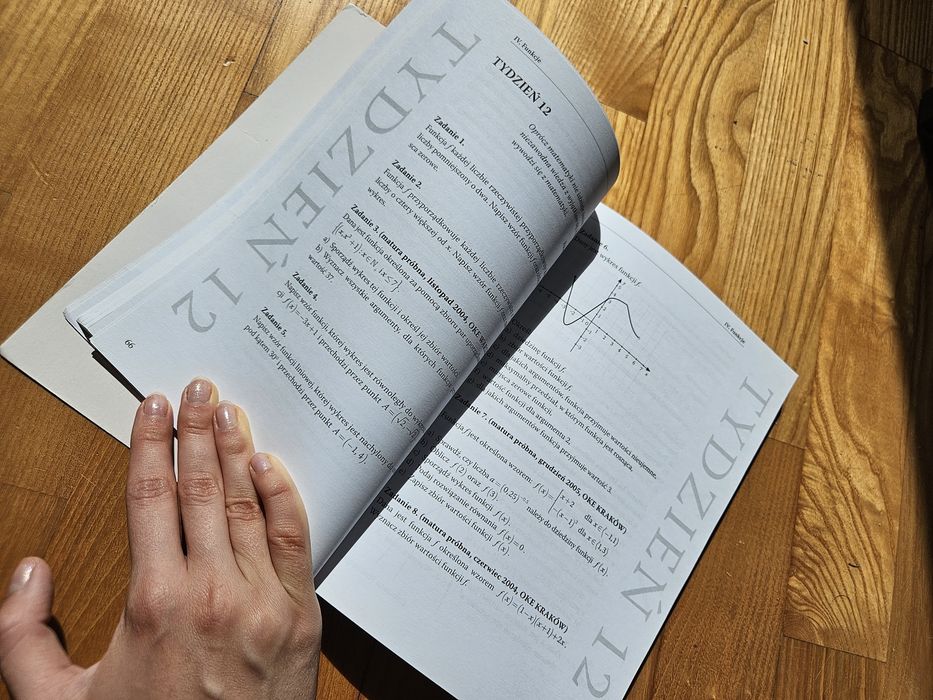 IV. Funkcje
TYDZIEŃ 12
TYDZIEŃ 12
Oprócz matematyki nie
niezawodna wiedza z wyją
wywodzi się z matematyki.
Zadanie 1.
Funkcja f każdej liczbie rzeczywistej przyporządk
liczby pomniejszony o dwa. Napisz wzór funkcji
sca zerowe.
Zadanie 2.
Funkcja f przyporządkowuje każdej liczbie rzeczyw
liczby o cztery większej od x. Napisz wzór funkcji
wykres.
Zadanie 3. (matura próbna, listopad 2004, OKE
Dana jest funkcja określona za pomocą zbioru par uporz
{(x,x²+1): x∈N, 1x≤7}.
a) Sporządź wykres tej funkcji i określ jej zbiór wartości
b) Wyznacz wszystkie argumenty, dla których funkcja
wartość 37.
Zadanie 4.
Napisz wzór funkcji, której wykres jest równoległy do wykr
cji f(x)=-3x+1 i przechodzi przez punkt A=(√2-
Zadanie 5.
Napisz wzór funkcji liniowej, której wykres jest nachylony do
pod kątem 30° i przechodzi przez punkt A=(-1,4).
66
IV. Funkcje
TYDZIEŃ 12
6.
wykres funkcji f.
dzinę funkcji f.
ór wartości funkcji f.
jakich argumentów, funkcja przyjmuje wartości nieujemne.
maksymalny przedział, w którym funkcja jest rosnąca.
ejsca zerowe funkcji.
wartość funkcji dla argumentu 2.
jakich argumentów funkcja przyjmuje wartość 3.
Zadanie 7. (matura próbna, grudzień 2005, OKE KRAKÓW)
f jest określona wzorem: f(x)= x+2 dla x∈(-1,1)
-(x-1)³ dla x∈(1,3)
prawdź, czy liczba a=(0,25) należy do dziedziny funkcji f(x).
blicz f(2) oraz f(3).
porządź wykres funkcji f(x).
odaj rozwiązanie równania f(x)=0.
apisz zbiór wartości funkcji f(x).
Zadanie 8. (matura próbna, czerwiec 2004, OKE KRAKÓW)
Dana jest funkcja f określona wzorem f(x)=(1-x)(x+1)+2x.
Wyznacz zbiór wartości funkcji f.